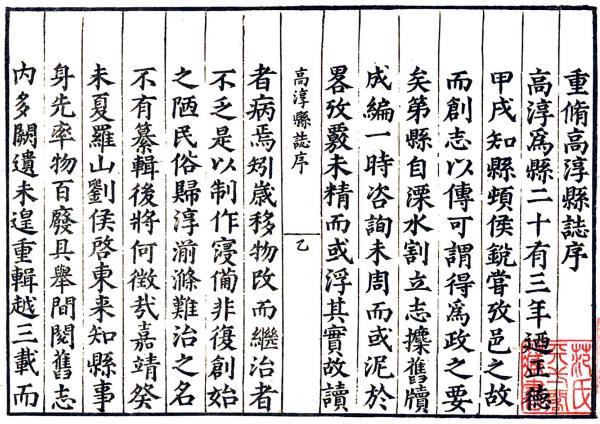 重脩高淳縣誌序
高淳爲縣二十有三年廼正德
甲戌知縣頓侯銳嘗攷邑之故
而創志以傳可謂得爲政之要
矣第縣自溧水割立志摭舊牘
成編一時咨詢未周而或泥於
畧攷覈未精而或浮其實故讀
高淳縣誌序
乙
者病焉矧歲移物改而繼治者
不乏是以制作寖備非復創始
之陋民俗歸淳湔滌難治之名
不有纂輯後將何徵哉嘉靖癸
未夏羅山劉侯啓東来知縣事
身先率物百廢具舉間閱舊志
内多闕遺未遑重輯越三載而